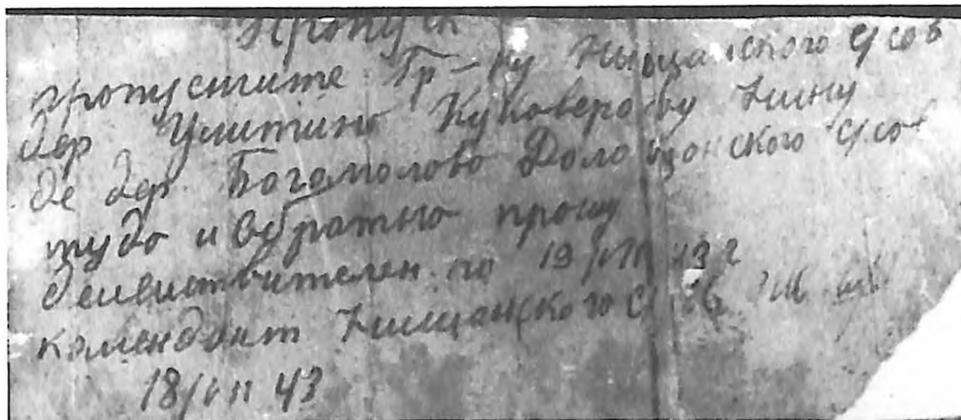 Пропуск
пропустите Гр-ку Нищанского с/сов
дер Улитино Куковерову Нину
до дер. Богомолово Долощанского с/сов
тудо и обратно прошу
действителен по 19/VII 43 г
комендант Нищанского с/с
18/VII 43